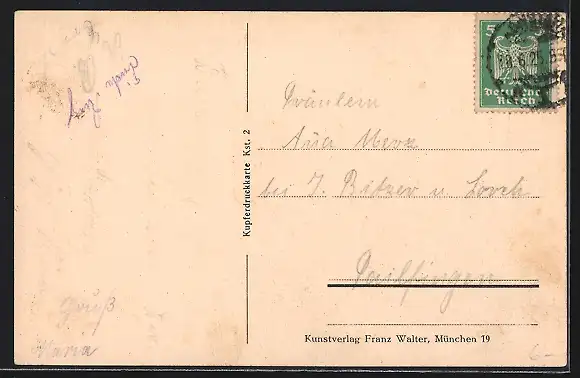 Fräulein
Ana Merz
bei J. Bitzer u. Lorch
Tailfingen
Gruß
Maria
Kupferdruckkarte Kst. 2
Kunstverlag Franz Walter, München 19
5
Deutsches
Reich
6-